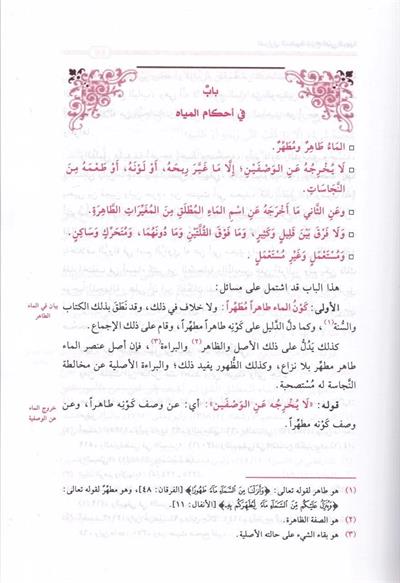 باب
في أحكام المياه
□ المَاءُ طَاهِرٌ ومُطَهِّرٌ.
□ لَا يُخْرِجُهُ عَنِ الوَصْفَيْنِ؛ إِلَّا مَا غَيَّرَ رِيحَهُ، أَوْ لَوْنَهُ، أَوْ طَعْمَهُ مِنَ
النَّجَاسَاتِ.
□ وعَنِ الثَّاني مَا أَخْرَجَهُ عَنِ اسْمِ المَاءِ المُطْلَقِ مِنَ المُغَيِّرَاتِ الطَّاهِرَةِ.
□ وَلَا فَرْقَ بَيْنَ قَلِيلٍ وكَثِيرٍ، وَمَا فَوْقَ القُلَّتَيْنِ وَمَا دُونَهُمَا، وَمُتَحَرِّكٍ وَسَاكِنٍ.
□ وَمُسْتَعْمَلٍ وَغَيْرِ مُسْتَعْمَلٍ.
هذا الباب قد اشتمل على مسائل:
الأولى: كَوْنُ الماء طاهراً مُطَهِّراً: ولا خلاف في ذلك، وقد نَطَقَ بذلك الكتاب
والسُّنة(١)، وكما دلَّ الدَّليل على كَوْنِه طاهراً مطهِّراً، وقام على ذلك الإجماع.
بيان في الماء
الطاهر
كذلك يَدُلُّ على ذلك الأصل والظاهر(٢) والبراءة(٣)، فإن أصل عنصر الماء
طاهر مطهِّر بلا نزاع، وكذلك الظُّهور يفيد ذلك؛ والبراءة الأصلية عن مخالطة
النَّجاسة له مُسْتصحبة.
قوله: «لَا يُخْرِجُهُ عَنِ الوَصْفَينِ»: أي: عن وصف كَوْنِه طاهراً، وعن
وصف كَوْنِه مطهِّراً.
خروج الماء
عن الوصفية
(١) هو طاهر لقوله تعالى: ﴿وَأَنزَلْنَا مِنَ السَّمَاءِ مَاءً طَهُورًا﴾ [الفرقان: ٤٨]، وهو مطهِّرٌ لقوله تعالى:
﴿وَيُنَزِّلُ عَلَيْكُم مِّنَ السَّمَاءِ مَاءً لِّيُطَهِّرَكُم بِهِ﴾ [الأنفال: ١١].
(٢) هو الصفة الظاهرة.
(٣) هو بقاء الشيء على حالته الأصلية.